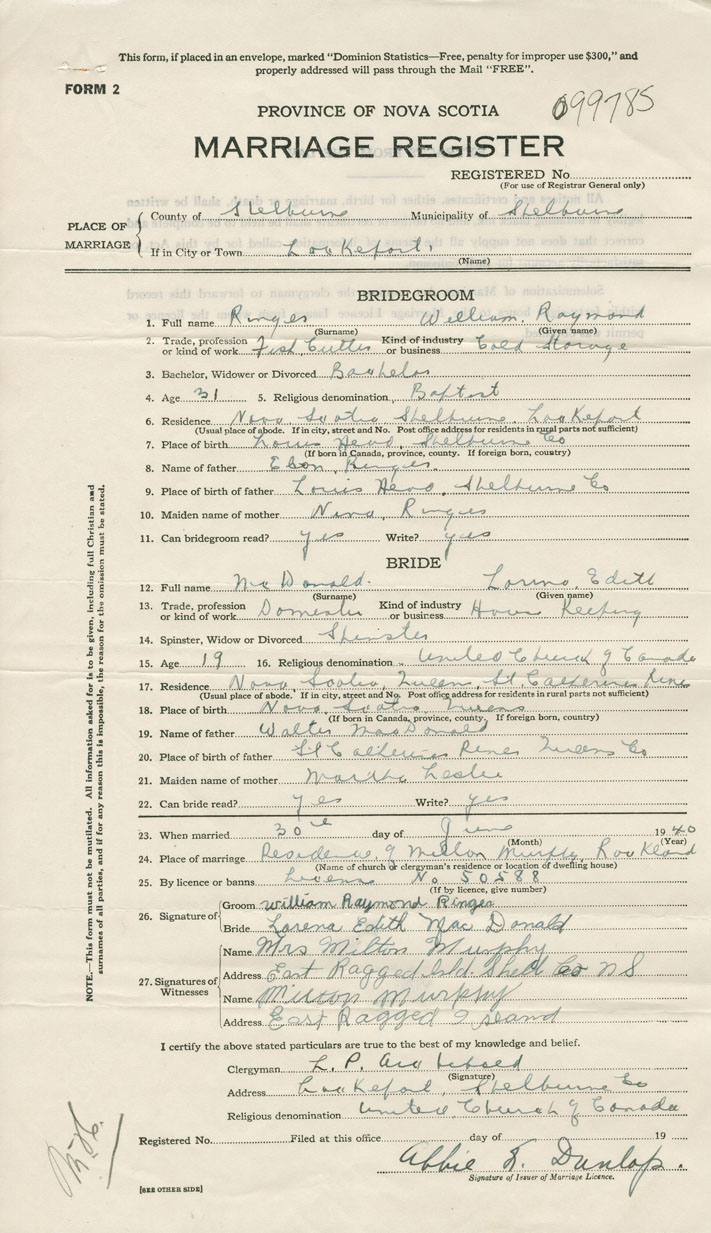 This form, if placed in an envelope, marked "Dominion Statistics—Free, penalty for improper use $300," and
properly addressed will pass through the Mail "FREE".
FORM 2
099785
PROVINCE OF NOVA SCOTIA
MARRIAGE REGISTER
REGISTERED No.
(For use of Registrar General only)
PLACE OF MARRIAGE
County of Shelburne Municipality of Shelburne
If in City or Town Lockeport
(Name)
BRIDEGROOM
1. Full name Ringer William Raymond
(Surname) (Given name)
2. Trade, profession or kind of work Fish Cutter Kind of industry or business Cold Storage
3. Bachelor, Widower or Divorced Bachelor
4. Age 31 5. Religious denomination Baptist
6. Residence Nova Scotia Shelburne Lockeport
(Usual place of abode. If in city, street and No. Post office address for residents in rural parts not sufficient)
7. Place of birth Louis Head, Shelburne Co
(If born in Canada, province, county. If foreign born, country)
8. Name of father Ringer
9. Place of birth of father Louis Head, Shelburne Co
10. Maiden name of mother Nina Ringer
11. Can bridegroom read? yes Write? yes
BRIDE
12. Full name McDonald Lorena Edith
(Surname) (Given name)
13. Trade, profession or kind of work Domestic Kind of industry or business House Keeping
14. Spinster, Widow or Divorced Spinster
15. Age 19 16. Religious denomination United Church of Canada
17. Residence Nova Scotia, Queens, St. Catherines River
(Usual place of abode. If in city, street and No. Post office address for residents in rural parts not sufficient)
18. Place of birth Nova Scotia Queens
(If born in Canada, province, county. If foreign born, country)
19. Name of father Walter MacDonald
20. Place of birth of father St Catherines River Queens Co
21. Maiden name of mother Martha Leslie
22. Can bride read? yes Write? yes
23. When married 30 day of June 1940
(Month) (Year)
24. Place of marriage Residence of Milton Murphy, Rockland
(Name of church or clergyman's residence or location of dwelling house)
25. By licence or banns Licens No 50588
(If by licence, give number)
26. Signature of
Groom William Raymond Ringer
Bride Lorena Edith Mac Donald
27. Signatures of Witnesses
Name Mrs Milton Murphy
Address East Ragged Isld. Shelb Co NS
Name Milton Murphy
Address East Ragged Island
I certify the above stated particulars are true to the best of my knowledge and belief.
Clergyman L. P. Archibald
(Signature)
Address Lockeport, Shelburne Co
Religious denomination United Church of Canada
Registered No. Filed at this office day of 19
Abbie L. Dunlop.
Signature of Issuer of Marriage Licence.
[SEE OTHER SIDE]
NOTE.—This form must not be mutilated. All information asked for is to be given, including full Christian and
surnames of all parties, and if for any reason this is impossible, the reason for the omission must be stated.